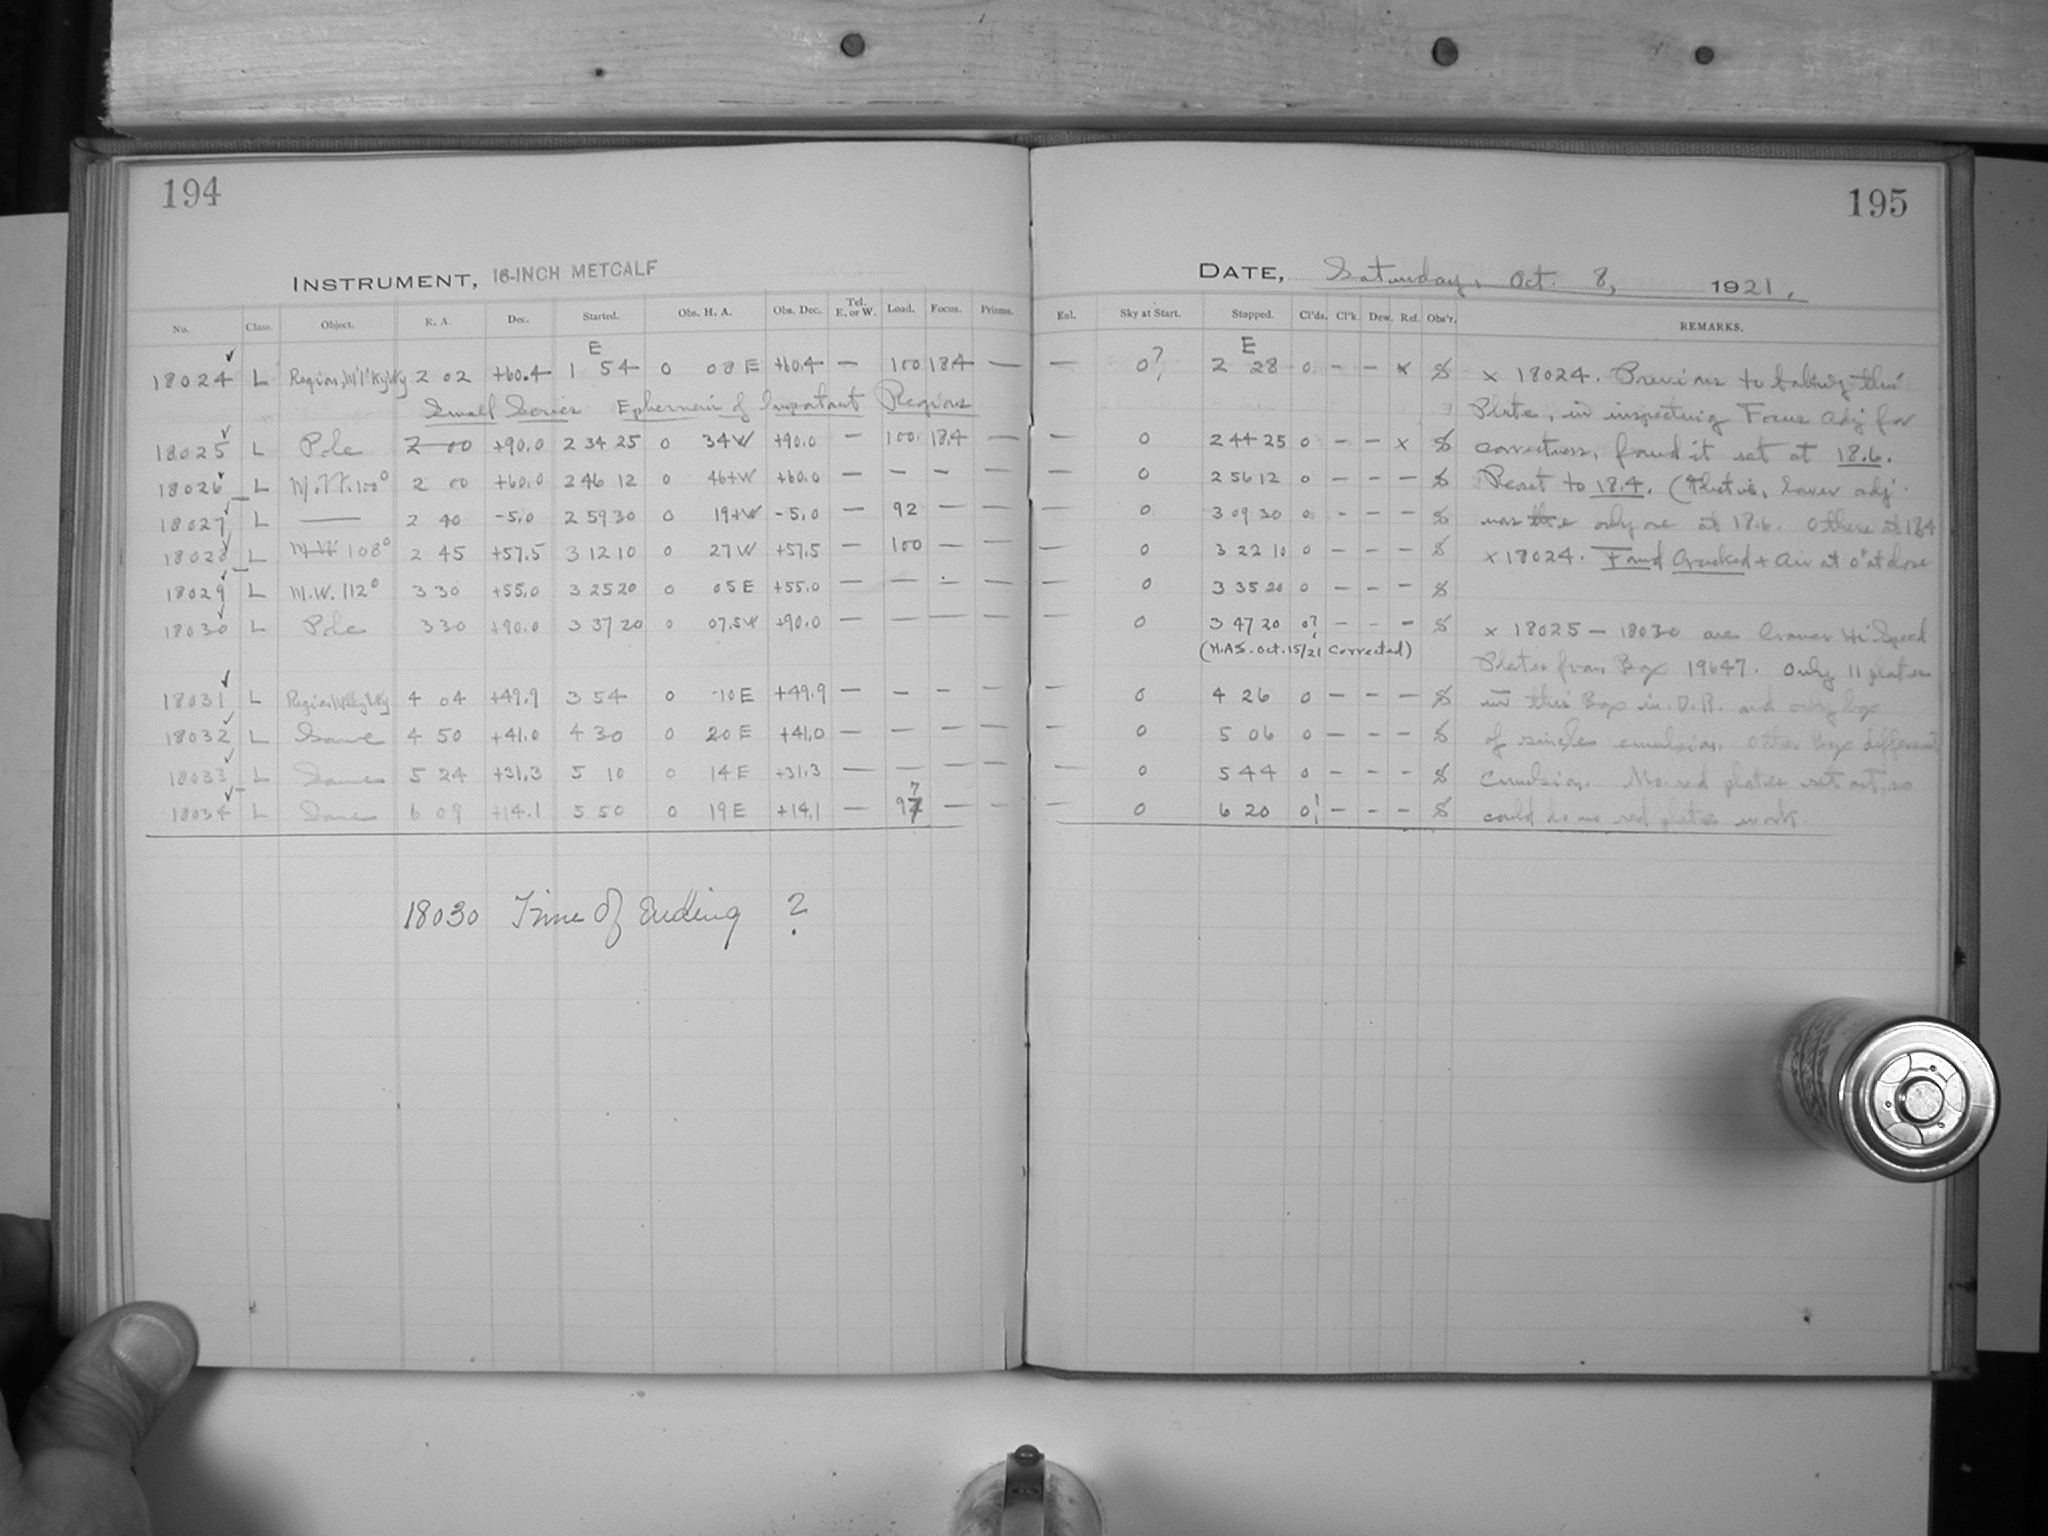 194
INSTRUMENT, 16-INCH METCALF
No. Class. Object. R. A. Dec. Started. Obs. H. A. Obs. Dec. Tel. E. or W. Load. Focus. Prisms.
E
18024 L Region 2 02 +60.4 1 54 0 08 E +60.4 — 100 18.4 —
Small Series Ephemeris of Important Regions
18025 L Pole 2 00 +90.0 2 34 25 0 34 W +90.0 — 100 18.4 —
18026 L 2 00 +60.0 2 46 12 0 46+W +60.0 — — — —
18027 L — 2 40 -5.0 2 59 30 0 19+W -5.0 — 92 — —
18028 L M.W. 108° 2 45 +57.5 3 12 10 0 27 W +57.5 — 100 — —
18029 L M.W. 112° 3 30 +55.0 3 25 20 0 05 E +55.0 — — — —
18030 L Pole 3 30 +90.0 3 37 20 0 07.5W +90.0 — — — —
18031 L Region 4 04 +49.9 3 54 0 10 E +49.9 — — — —
18032 L Same 4 50 +41.0 4 30 0 20 E +41.0 — — — —
18033 L Same 5 24 +31.3 5 10 0 14 E +31.3 — — — —
18034 L Same 6 09 +14.1 5 50 0 19 E +14.1 — 97 — —
18030 Time of Ending ?
195
DATE, Saturday, Oct. 8, 1921.
Eul. Sky at Start. Stopped. Cl'ds. Cl'k. Dew. Ref. Obs'r. REMARKS.
E
— 0? 2 28 0 — — x
— 0 2 44 25 0 — — x
— 0 2 56 12 0 — — —
— 0 3 09 30 0 — — —
— 0 3 22 10 0 — — —
— 0 3 35 20 0 — — —
— 0 3 47 20 0? — — —
(H.A.S. Oct. 15/21 corrected)
— 0 4 26 0 — — —
— 0 5 06 0 — — —
— 0 5 44 0 — — —
— 0 6 20 0! — — —
x 18024. Previous to taking this
Plate, in inspecting Focus Adj for
correctness, found it set at 18.6.
Reset to 18.4. (That is, lower adj
was the only one at 18.6. Others at 18.4
x 18024. Found Cracked + Air at 0° at close
x 18025 — 18030 are Cramer Hi Speed
Plates from Box 19647. Only 11 plates
in this Box in D.R. and only box
of single emulsion. Other Box different
emulsion. No red plates set out, so
could do no red plates work.